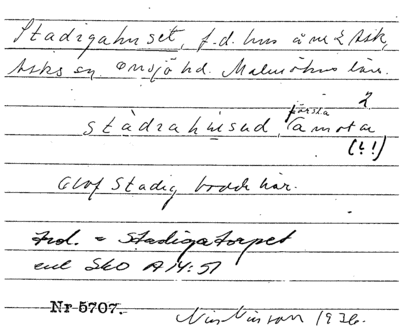 Stadigahuset, f.d. hus å nr 2 Ask,
Asks sn. Onsjö hd. Malmöhus län.
2
städrahused, första
(!!)
Olof Stadig bodde här.
Trol. = Stadigatorpet
enl Sko A14:51
Nr 5707.
1936.